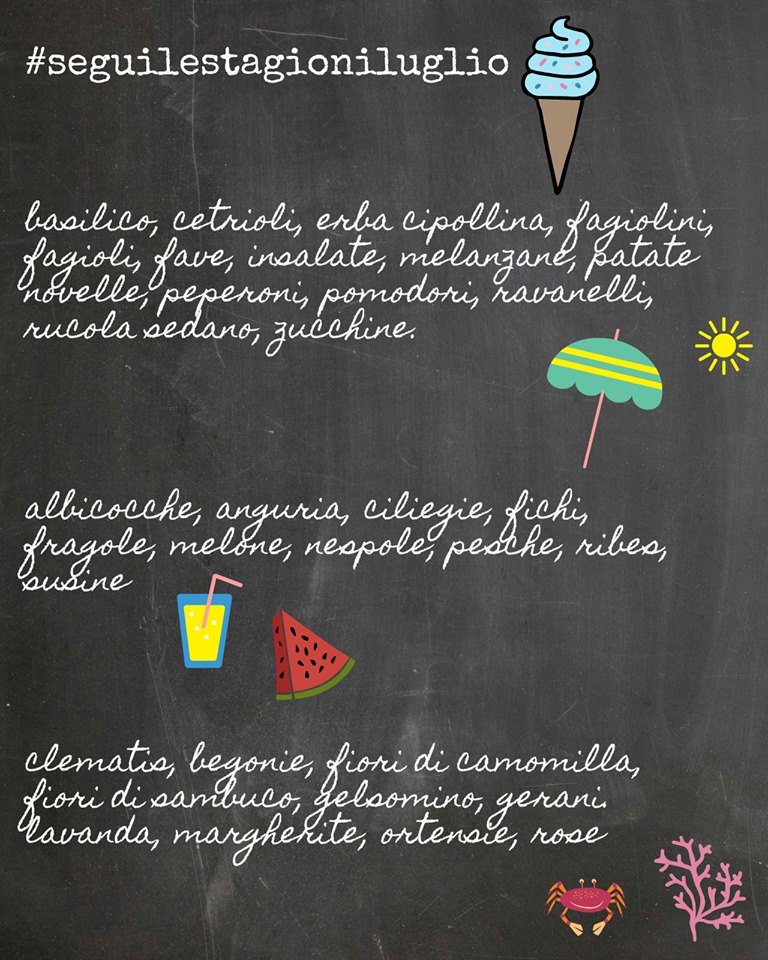 #seguilestagioniluglio
basilico, cetrioli, erba cipollina, fagiolini,
fagioli, fave, insalate, melanzane, patate
novelle, peperoni, pomodori, ravanelli,
rucola sedano, zucchine.
albicocche, anguria, ciliegie, fichi,
fragole, melone, nespole, pesche, ribes,
susine
clematis, begonie, fiori di camomilla,
fiori di sambuco, gelsomino, gerani.
lavanda, margherite, ortensie, rose